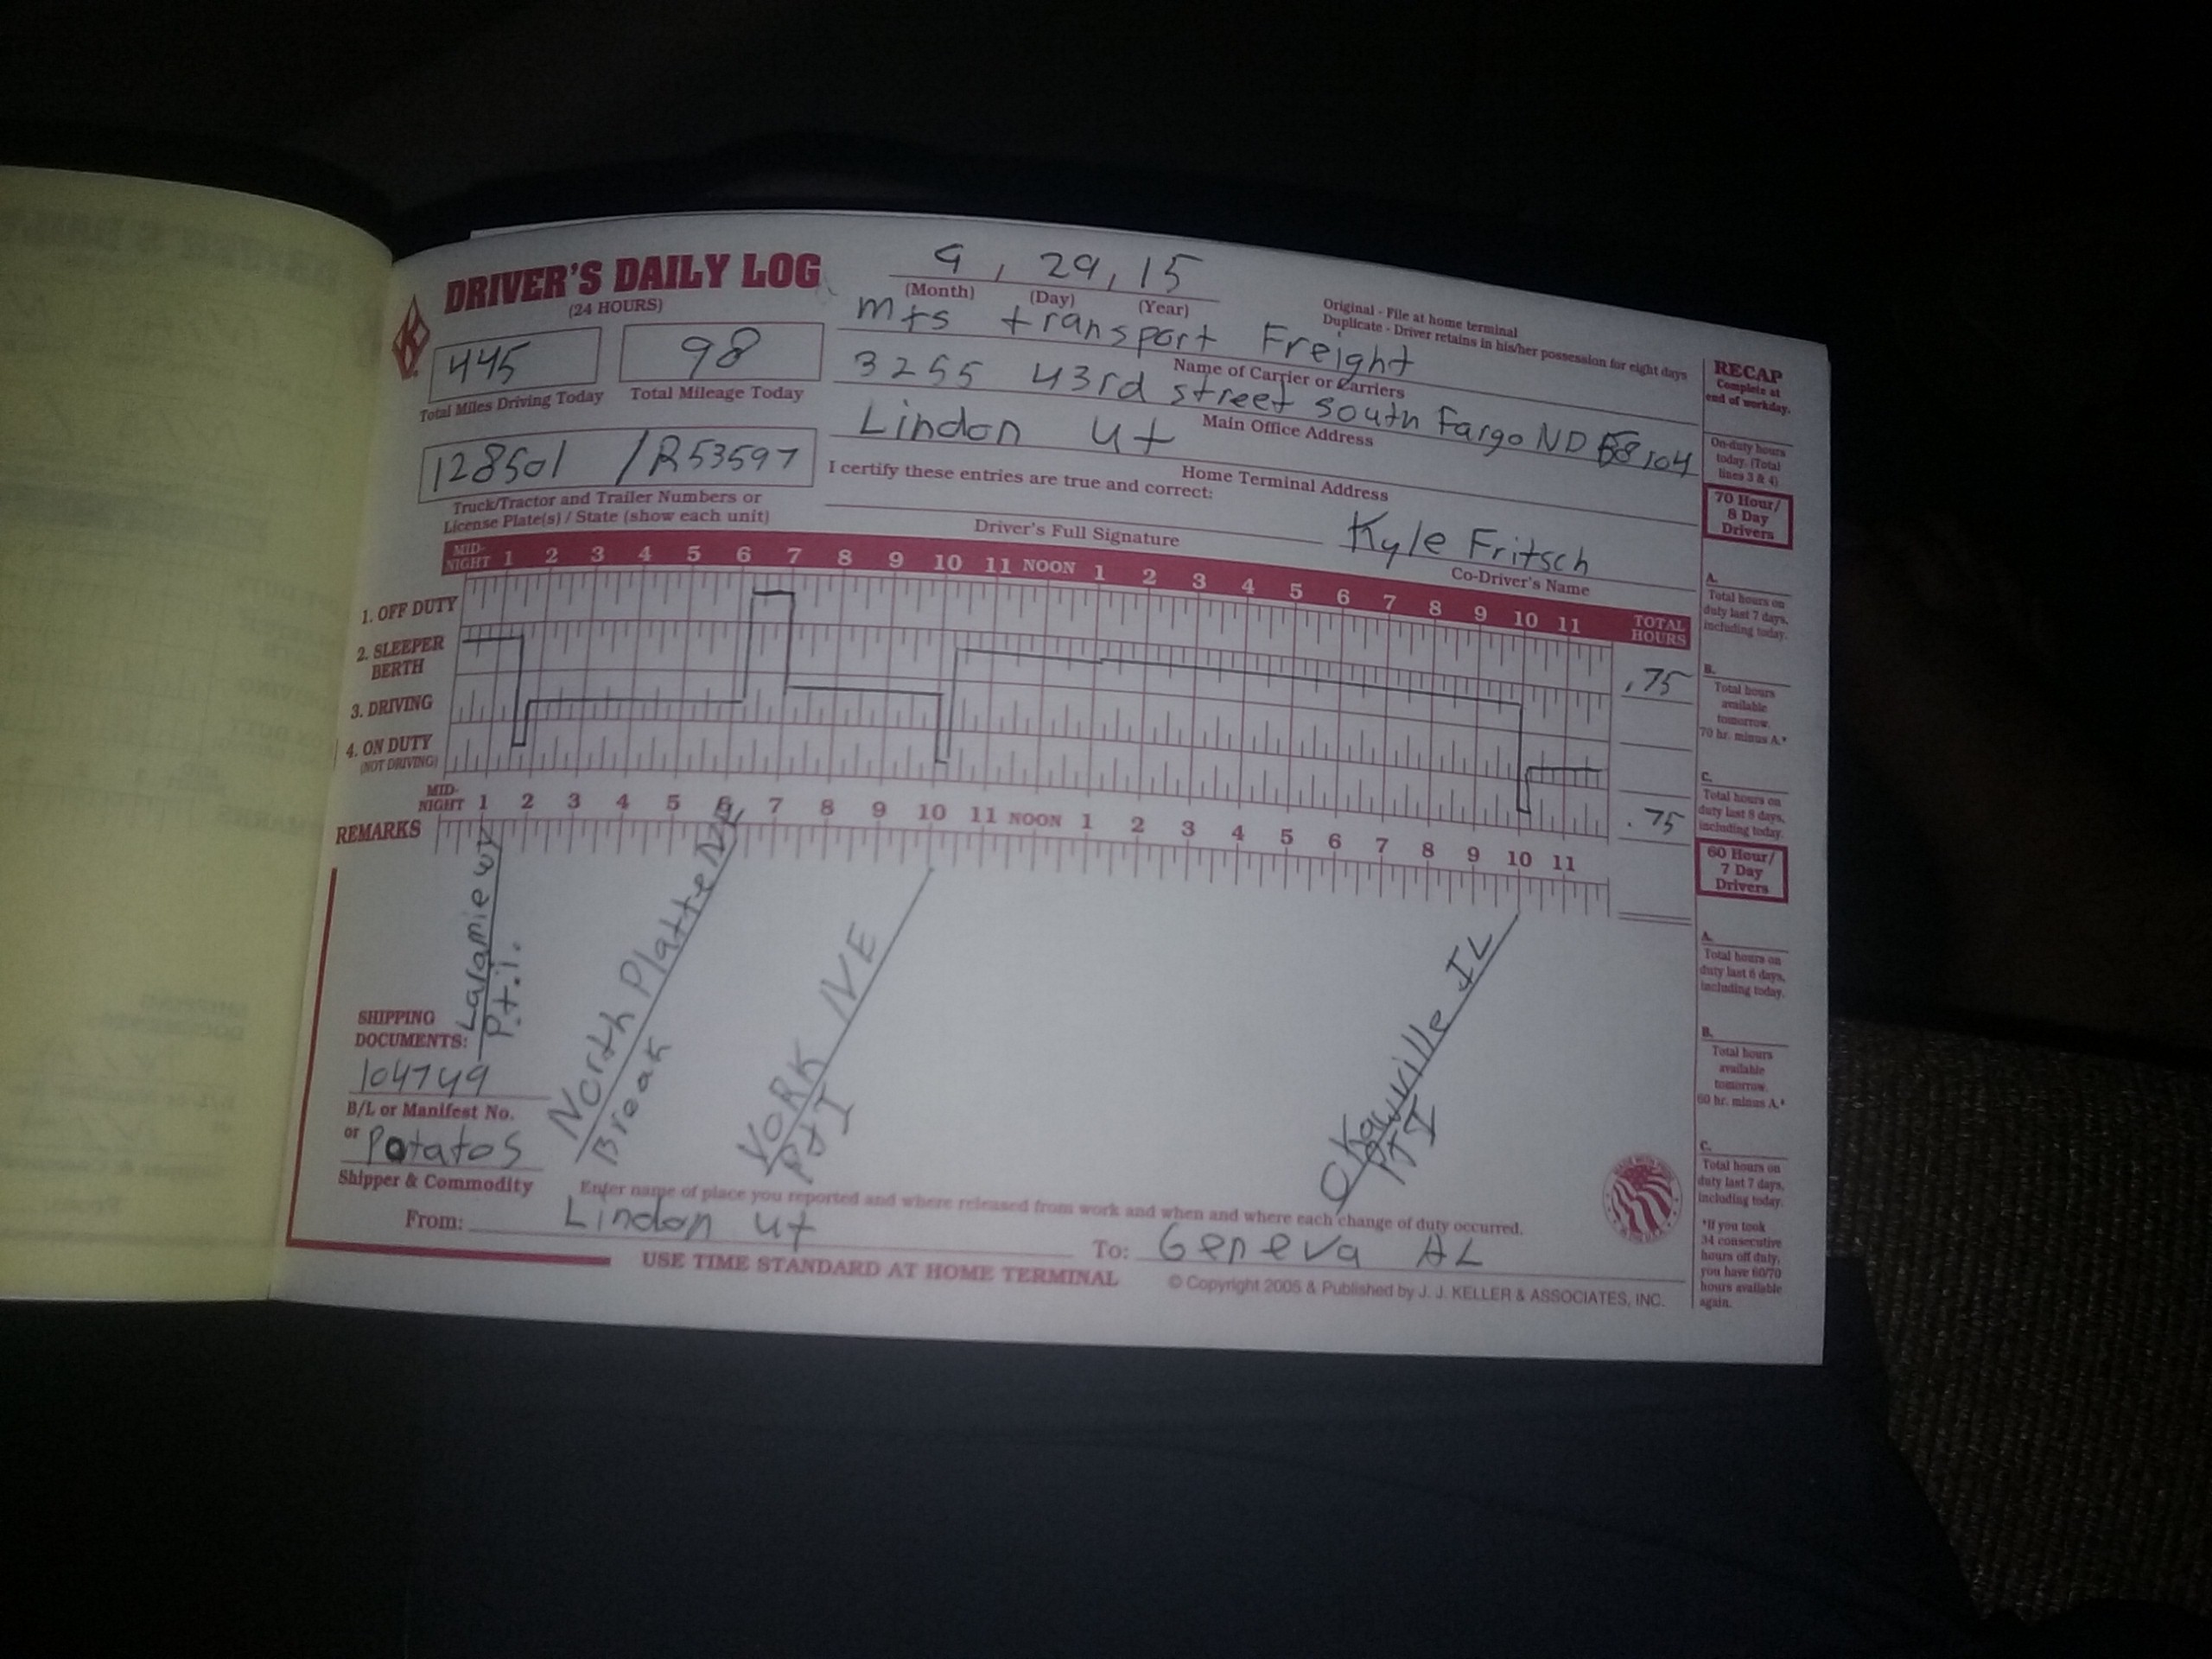 DRIVER'S DAILY LOG
(24 HOURS)
9, 29, 15
(Month) (Day) (Year)
Original - File at home terminal
Duplicate - Driver retains in his/her possession for eight days
445
Total Miles Driving Today
98
Total Mileage Today
mts transport Freight
Name of Carrier or Carriers
3255 43rd street south Fargo ND 58104
Main Office Address
Lindon ut
Home Terminal Address
128501 /R53597
Truck/Tractor and Trailer Numbers or
License Plate(s) / State (show each unit)
I certify these entries are true and correct:
Driver's Full Signature
Kyle Fritsch
Co-Driver's Name
MID-
NIGHT 1 2 3 4 5 6 7 8 9 10 11 NOON 1 2 3 4 5 6 7 8 9 10 11
TOTAL
HOURS
1. OFF DUTY
2. SLEEPER
BERTH
3. DRIVING
4. ON DUTY
(NOT DRIVING)
.75
.75
MID-
NIGHT 1 2 3 4 5 6 7 8 9 10 11 NOON 1 2 3 4 5 6 7 8 9 10 11
REMARKS
Laramie wy
P.t.i.
North Platte NE
Break
YORK NE
PtI
Okawville IL
PTI
SHIPPING
DOCUMENTS:
104749
B/L or Manifest No.
or
Potatos
Shipper & Commodity
Enter name of place you reported and where released from work and when and where each change of duty occurred.
From: Lindon ut
To: Geneva AL
USE TIME STANDARD AT HOME TERMINAL
© Copyright 2005 & Published by J. J. KELLER & ASSOCIATES, INC.
RECAP
Complete at
end of workday.
On-duty hours
today. (Total
lines 3 & 4)
70 Hour/
8 Day
Drivers
A.
Total hours on
duty last 7 days,
including today.
B.
Total hours
available
tomorrow.
70 hr. minus A.*
C.
Total hours on
duty last 8 days,
including today.
60 Hour/
7 Day
Drivers
A.
Total hours on
duty last 6 days,
including today.
B.
Total hours
available
tomorrow.
60 hr. minus A.*
C.
Total hours on
duty last 7 days,
including today.
*If you took
34 consecutive
hours off duty,
you have 60/70
hours available
again.